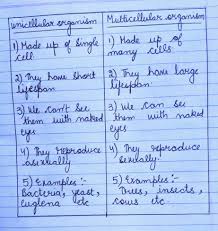 unicellular organism
Multicellular organism
1) Made up of single
cell
1) Made up of
many cells
2) They have short
lifespan
2) They have large
lifespan
3) We can't see
them with naked
eyes
3) We can see
them with naked
eyes
4) They reproduce
asexually
4) They reproduce
sexually.
5) Examples :-
Bacteria, yeast,
euglena etc
5) Examples :-
Trees, insects,
cows etc.